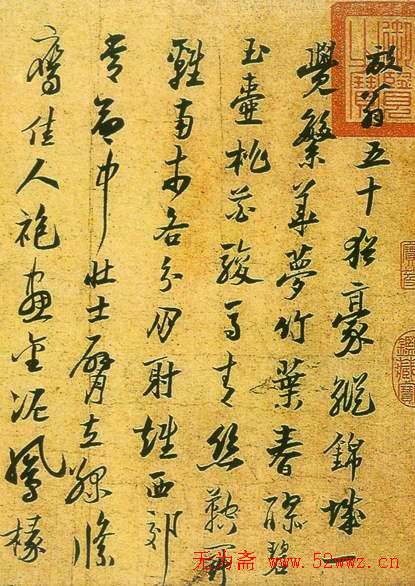 放翁五十猶豪縱錦城一
覺繁華夢竹葉春醪碧
玉壺桃花駿馬青絲鞚鬭
雞南市各分朋射雉西郊
常命中壯士臂立綠絛
鷹佳人袍畫金泥鳳椽
鑑藏寶
无为斋 www.52wwz.cn